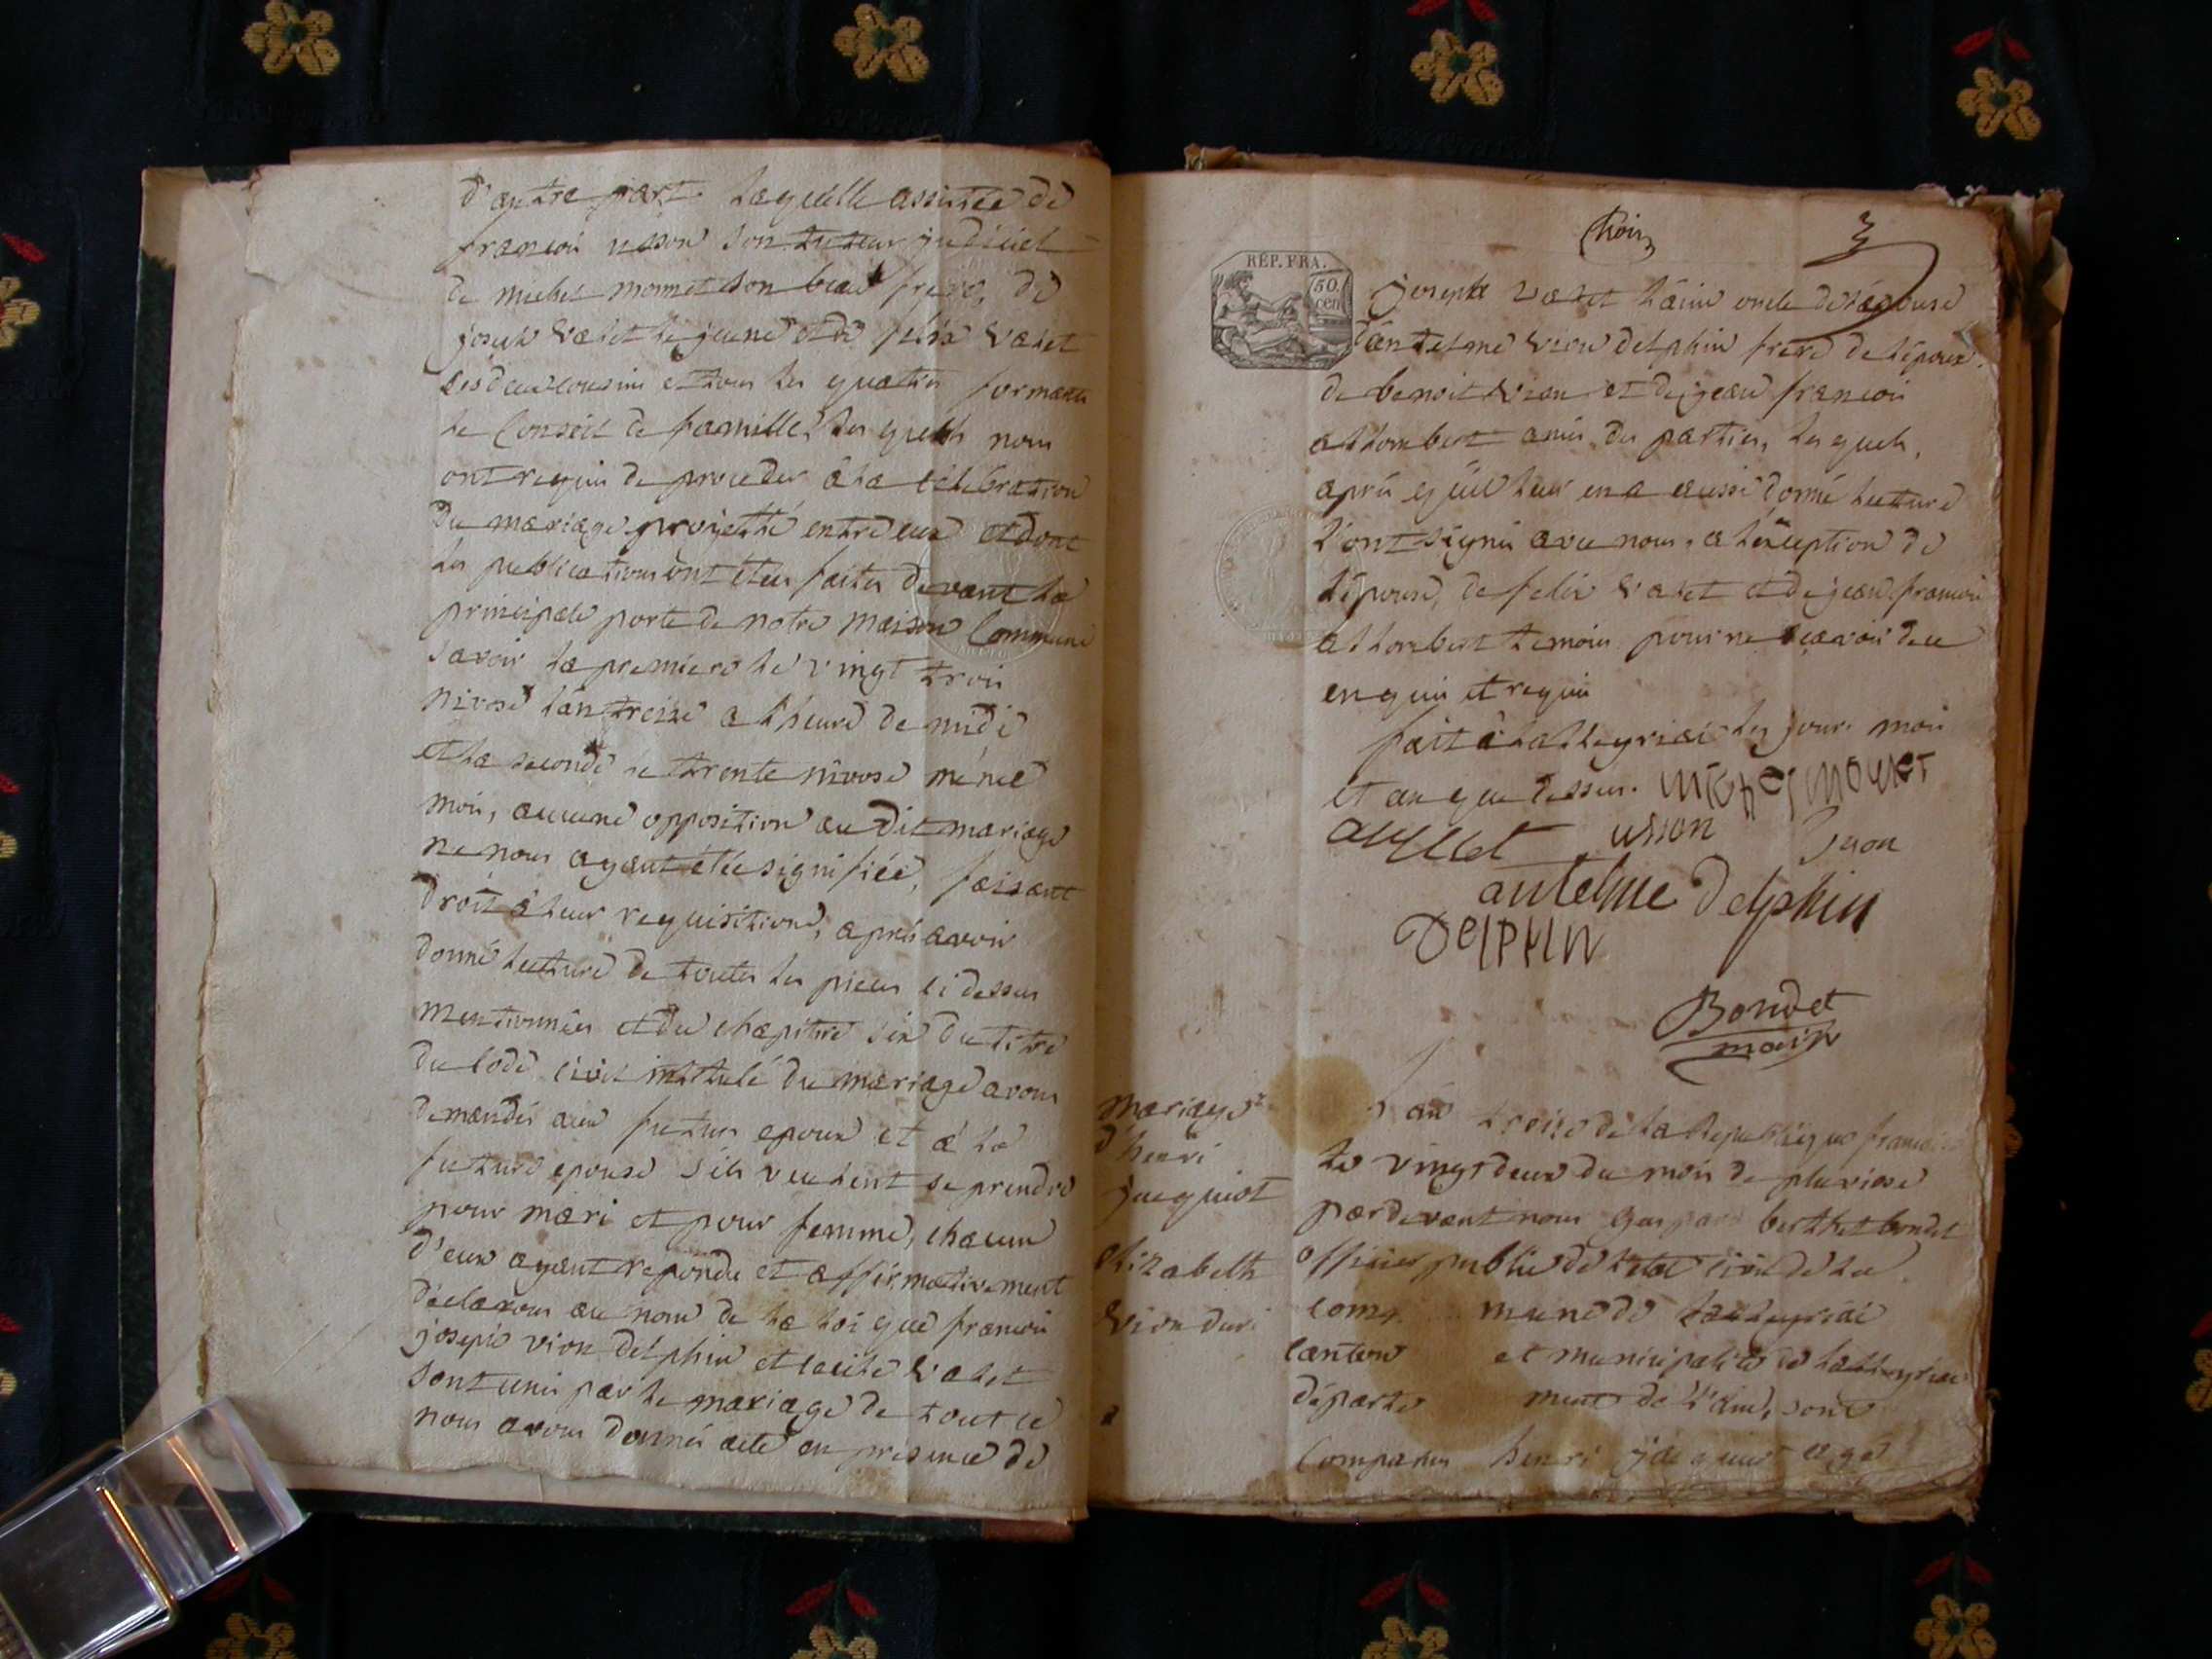 d'autre part. Laquelle assistée de
françois usson son tuteur judiciel
de michel monnet son beau frere, de
joseph valet le jeune et de felix valet
ses deux cousins et tous les quatres formants
le Conseil de famille, les quels nous
ont requis de proceder a la célébration
du mariage projetté entre eux et dont
les publications ont étées faites devant la
principale porte de notre maison Commune
savoir la premiere le vingt trois
nivose l'an treize a l'heure de midi
et la seconde le trente nivose même
mois, aucune opposition au dit mariage
ne nous ayant étée signifiée, faisant
droit a leur requisitions, après avoir
donné lecture de toutes les pieces ci dessus
mentionnées et du chapitre six du titre
du Code civil intitulé du mariage avons
demandés aux futurs epoux et a la
future epouse s'ils veulent se prendre
pour mari et pour femme, chacun
d'eux ayant repondu et affirmativement
déclarons au nom de la loi que françois
joseph vion delphin et cecile valet
sont unis par le mariage de tout ce
nous avons donnés acte en presence de
trois
3
RÉP. FRA.
50.
cen
joseph valet l'ainé oncle de l'épouse
d'antelme vion delphin frere de l'époux.
de benoit vion et de jean françois
allombert amis des parties, les quels,
après qu'il leur en a aussi donné lecture
l'ont signés avec nous, a l'exception de
l'épouse, de felix valet et de jean françois
allombert temoins pour ne sçavoir de ce
enquis et requis
fait a la Lleyriat les jour mois
et an que dessus. michel monet
usson
antelme Delphin
DelPHiN
Bondet
maire
mariage
d'henri
jacquiot
elizabeth
Vion duri
L'an treize de la Republique française
le vingt deux du mois de pluviose
par devant nous gaspard berthet bondet
officier public de l'etat civil de la
com mune de
canton et municipalité de
départe ment de l'ain, sont
Comparus henri jacquiot agé